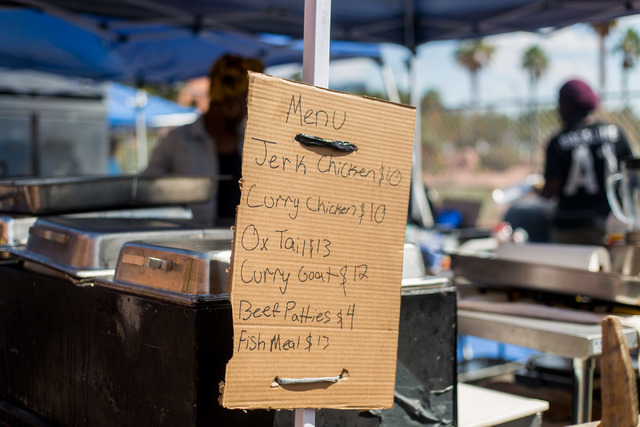 Menu
Jerk Chicken $10
Curry Chicken $10
Ox Tail $13
Curry Goat $12
Beef Patties $4
Fish Meal $13